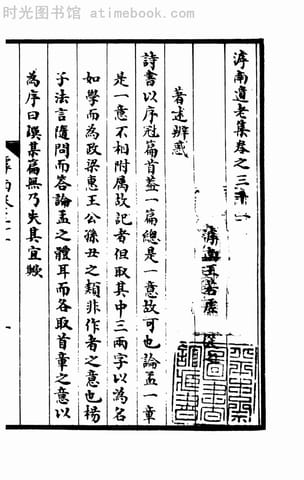 时光图书馆 atimebook.com
滹南遺老集卷之三十一
滹南王若虛
著述辨惑
詩書以序冠篇首蓋一篇總是一意故可也論孟一章
是一意不相附屬故記者但取其中三兩字以為名
如學而為政梁惠王公孫丑之類非作者之意也楊
子法言隨問而答論孟之體耳而各取首章之意以
為序曰譔某篇無乃失其宜歟